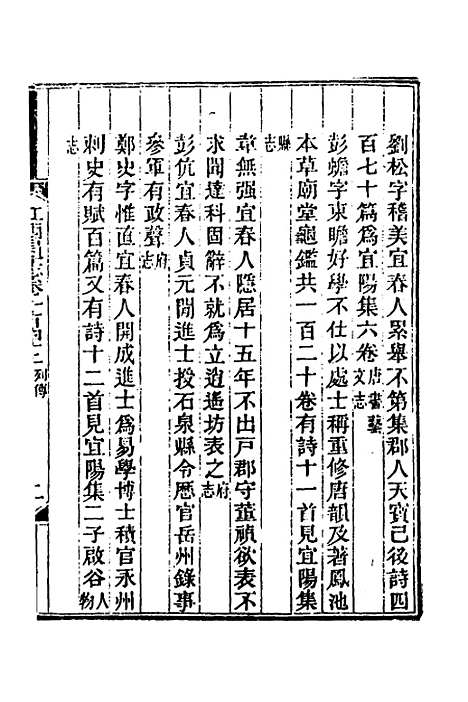 劉松字稽美宜春人累舉不第集郡人天寶已後詩四
百七十篇爲宜陽集六卷唐書藝文志
彭蟾字東瞻好學不仕以處士稱重修唐韻及著鳳池
本草廟堂龜鑑共一百二十卷有詩十一首見宜陽集
縣志
韋無强宜春人隱居十五年不出戸郡守董禎欲表不
求聞達科固辭不就爲立逍遙坊表之府志
彭伉宜春人貞元間進士授石泉縣令歷官岳州錄事
參軍有政聲府志
鄭史字惟直宜春人開成進士爲易學博士積官永州
刺史有賦百篇又有詩十二首見宜陽集二子啟谷人物
志
列傳